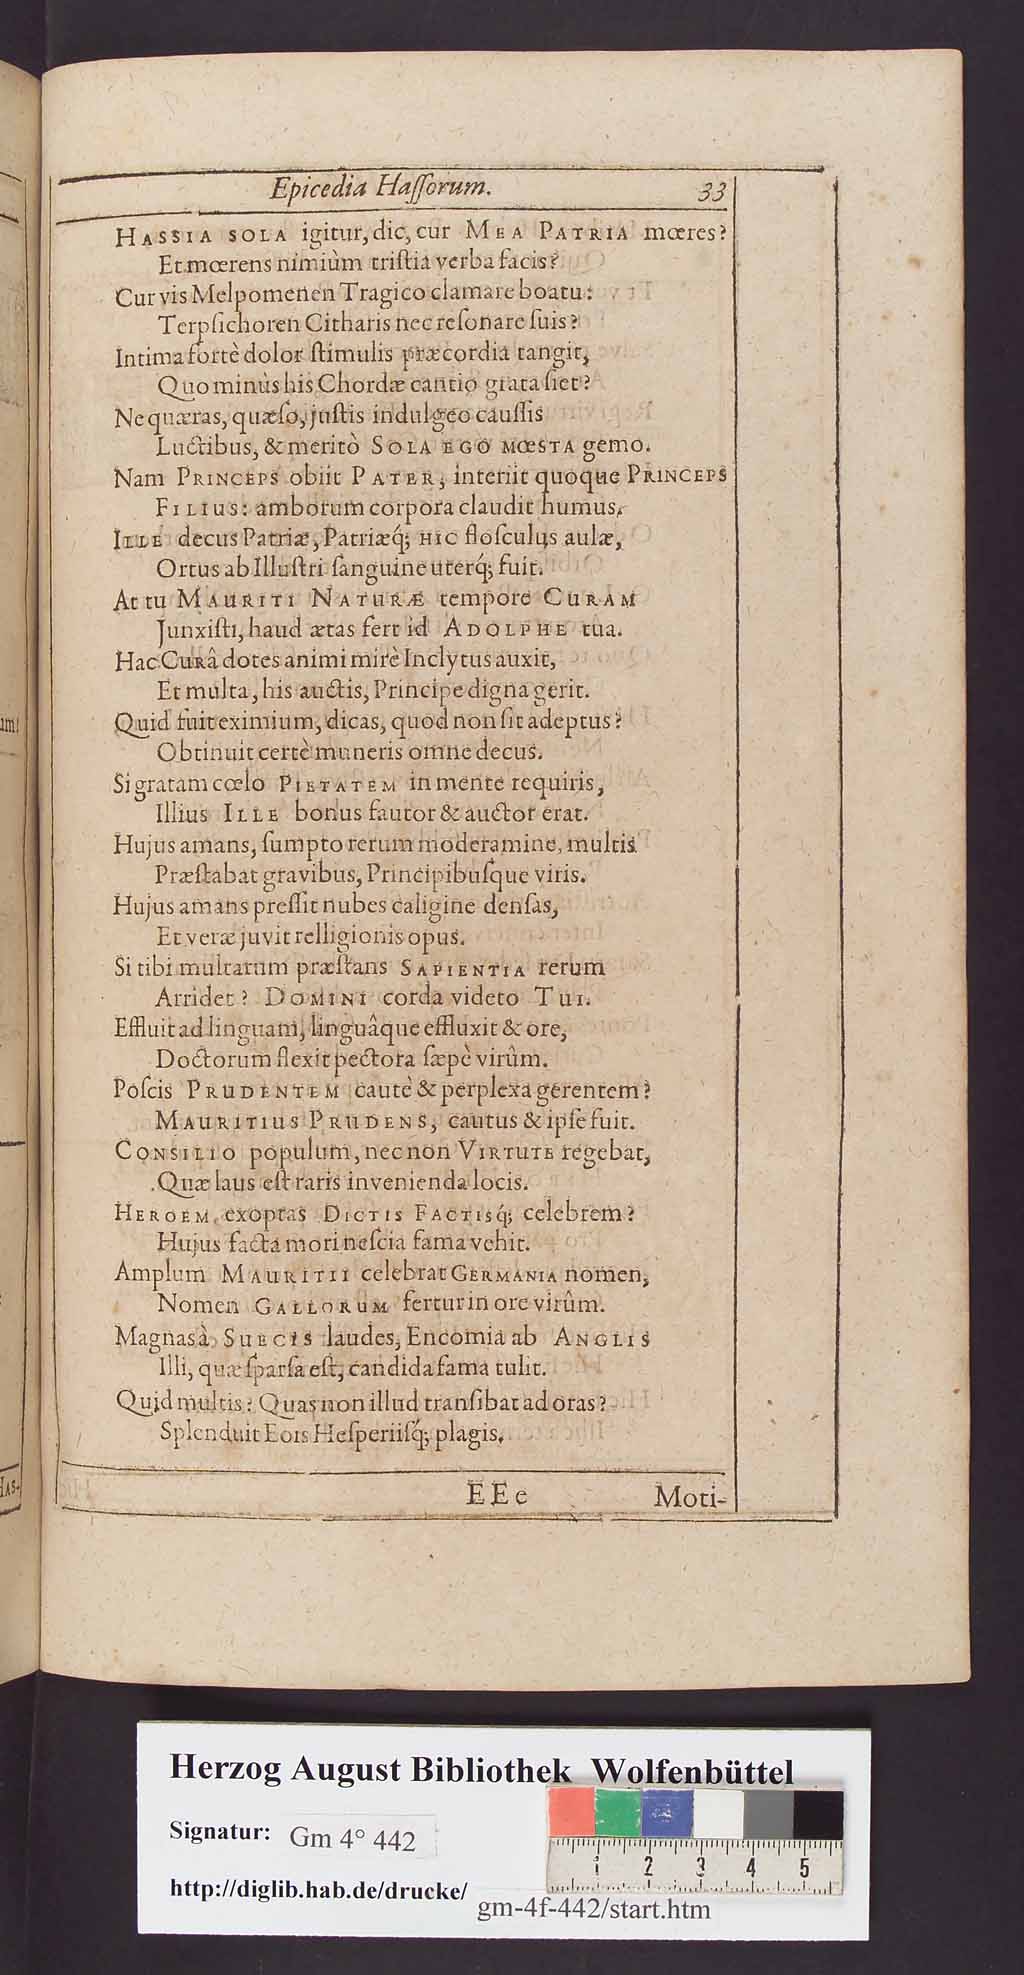 Epicedia Haſſorum. 33
HASSIA SOLA igitur, dic, cur MEA PATRIA mœres?
Et mœrens nimiùm triſtia verba facis?
Cur vis Melpomenen Tragico clamare boatu:
Terpſichoren Citharis nec reſonare ſuis?
Intima fortè dolor ſtimulis præcordia tangit,
Quo minùs his Chordæ cantio grata ſiet?
Ne quæras, quæſo, juſtis indulgeo cauſſis
Luctibus, & meritò SOLA EGO MŒSTA gemo.
Nam PRINCEPS obiit PATER, interiit quoque PRINCEPS
FILIUS: amborum corpora claudit humus.
ILLE decus Patriæ, Patriæq́; HIC floſculus aulæ,
Ortus ab Illuſtri ſanguine uterq́; fuit.
At tu MAURITI NATURÆ tempore CURAM
Junxiſti, haud ætas fert id ADOLPHE tua.
Hac CURâ dotes animi mirè Inclytus auxit,
Et multa, his auctis, Principe digna gerit.
Quid fuit eximium, dicas, quod non ſit adeptus?
Obtinuit certè muneris omne decus.
Si gratam cœlo PIETATEM in mente requiris,
Illius ILLE bonus fautor & auctor erat.
Hujus amans, ſumpto rerum moderamine, multis
Præſtabat gravibus, Principibuſque viris.
Hujus amans preſſit nubes caligine denſas,
Et veræ juvit relligionis opus.
Si tibi multarum præſtans SAPIENTIA rerum
Arridet? DOMINI corda videto TUI.
Effluit ad linguam, linguâque effluxit & ore,
Doctorum flexit pectora ſæpè virûm.
Poſcis PRUDENTEM cautè & perplexa gerentem?
MAURITIUS PRUDENS, cautus & ipſe fuit.
CONSILIO populum, nec non VIRTUTE regebat,
Quæ laus eſt raris invenienda locis.
HEROEM exoptas DICTIS FACTISq́; celebrem?
Hujus facta mori neſcia fama vehit.
Amplum MAURITII celebrat GERMANIA nomen,
Nomen GALLORUM fertur in ore virûm.
Magnas à SUECIS laudes, Encomia ab ANGLIS
Illi, quæ ſparſa eſt, candida fama tulit.
Quid multis? Quas non illud tranſibat ad oras?
Splenduit Eois Heſperiiſq́; plagis.
EEe Moti-
um!
HAS-
Herzog August Bibliothek Wolfenbüttel
Signatur: Gm 4° 442
http://diglib.hab.de/drucke/ gm-4f-442/start.htm
1 2 3 4 5